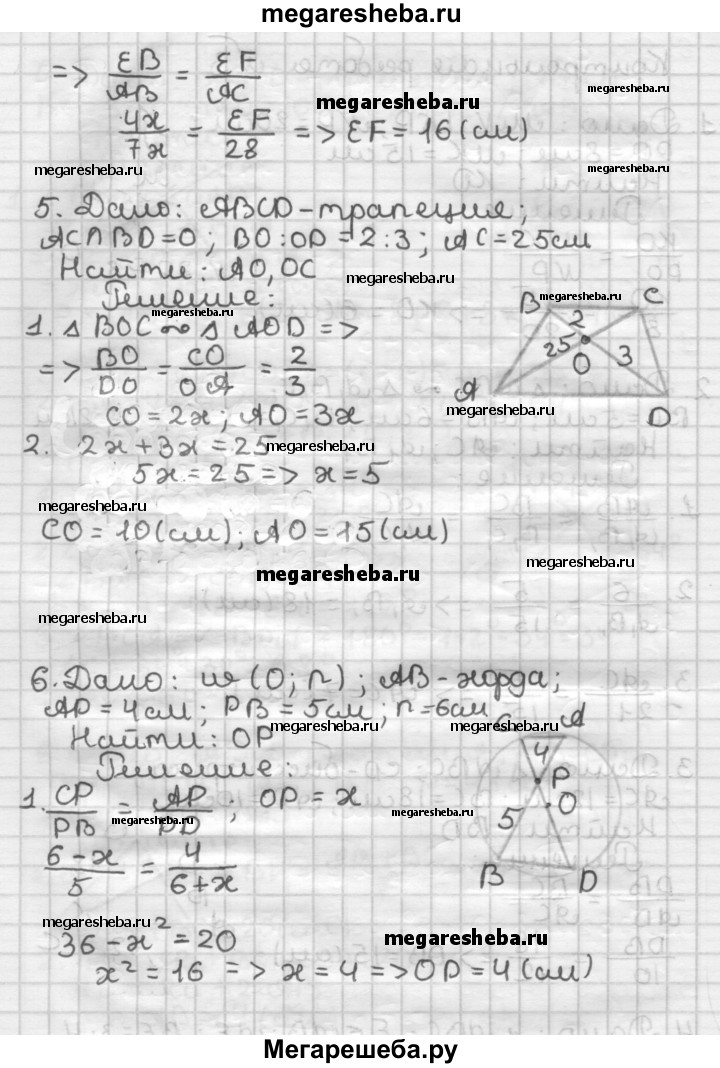 megaresheba.ru
=> EB/AB = EF/AC
megaresheba.ru
megaresheba.ru
4x/7x = EF/28 => EF = 16 (см)
megaresheba.ru
megaresheba.ru
5. Дано: ABCD - трапеция;
AC∩BD=O; BO:OD=2:3; AC=25см
Найти: AO, OC
megaresheba.ru
Решение:
megaresheba.ru
1. △ BOC ~ △ AOD =>
megaresheba.ru
=> BO/DO = CO/OA = 2/3
B C 2 25 O 3 A D
CO = 2x; AO = 3x
megaresheba.ru
2. 2x + 3x = 25
megaresheba.ru
5x = 25 => x = 5
megaresheba.ru
CO = 10 (см); AO = 15 (см)
megaresheba.ru
megaresheba.ru
megaresheba.ru
6. Дано: w (O; r); AB - хорда;
AP = 4см; PB = 5см; r = 6см
megaresheba.ru
megaresheba.ru
Найти: OP
Решение:
C A 4 P O 5 B D
1. CP/PB = AP/PD; OP = x
megaresheba.ru
megaresheba.ru
6-x/5 = 4/6+x
megaresheba.ru
36 - x² = 20
megaresheba.ru
x² = 16 => x = 4 => OP = 4 (см)
Мегарешеба.ру